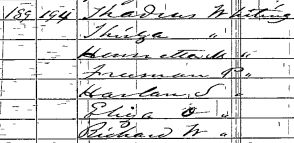 189 194 Thadius Whiting
Thirza "
Henrietta M "
Freeman P "
Harlan S "
Eliza O "
Richard W "